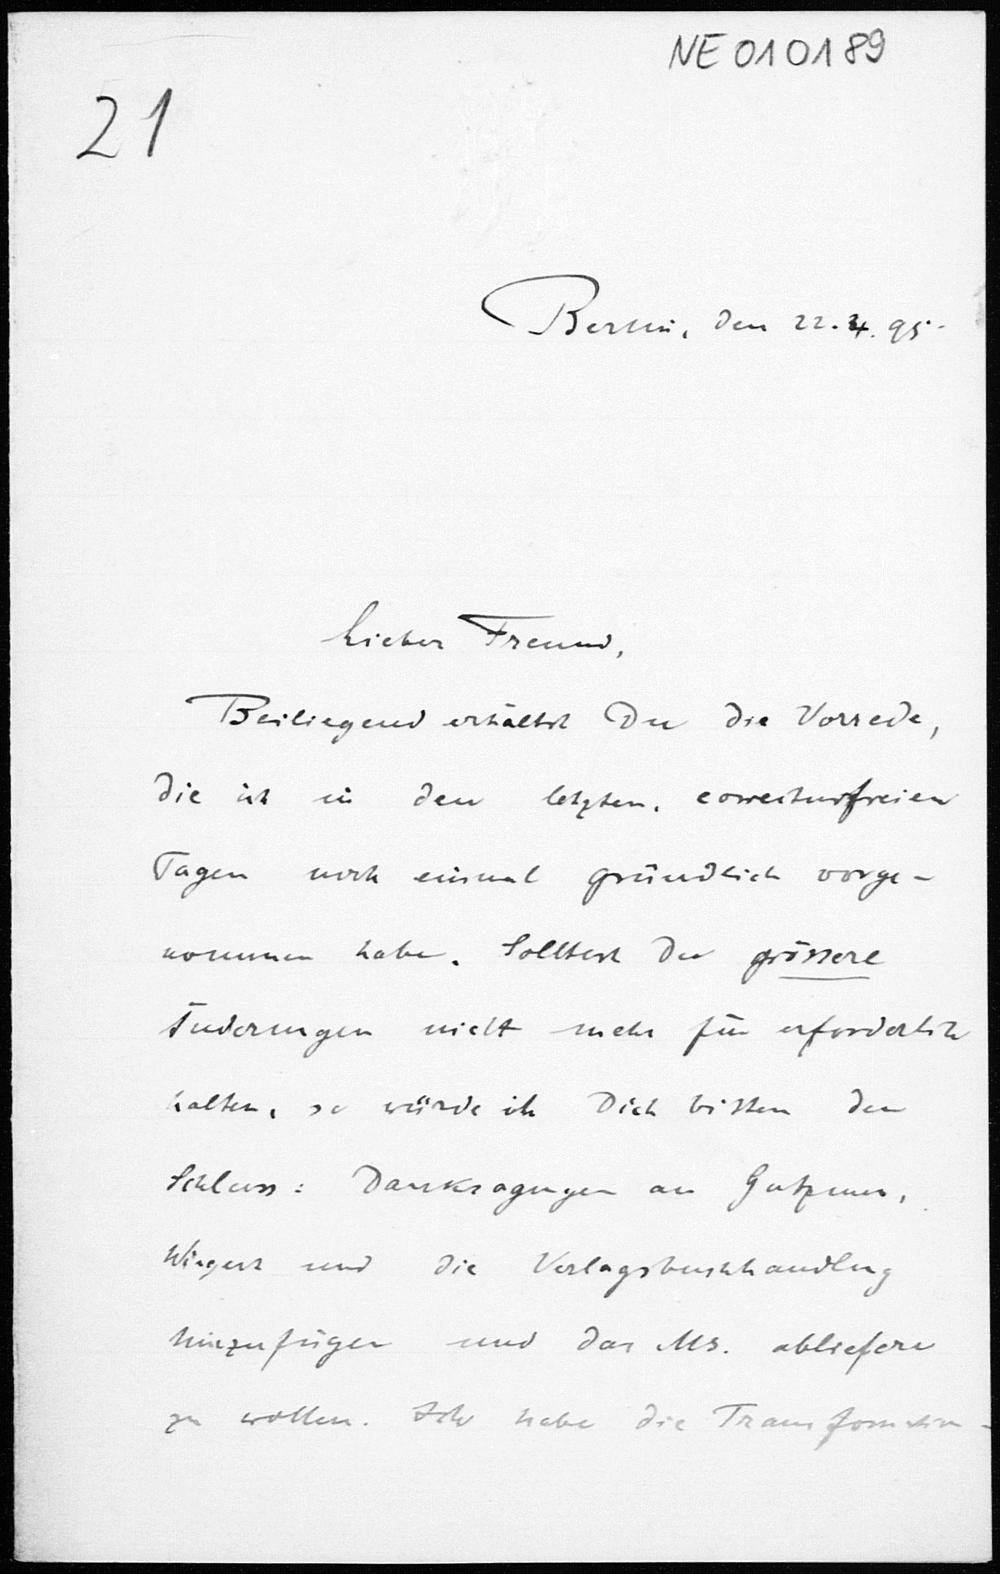 NE 010189
21
Berlin, den 22.4.95.
Lieber Freund,
Beiliegend erhältst Du die Vorrede,
die ich in den letzten, correcturfreien
Tagen noch einmal gründlich vorge-
nommen habe. Solltest Du grössere
Änderungen nicht mehr für erforderlich
halten, so würde ich Dich bitten den
Schluss: Danksagungen an Gutzmer,
Wiegert und die Verlagsbuchhandlung
hinzufügen und das MS. abliefern
zu wollen. Ich habe die Transformation-